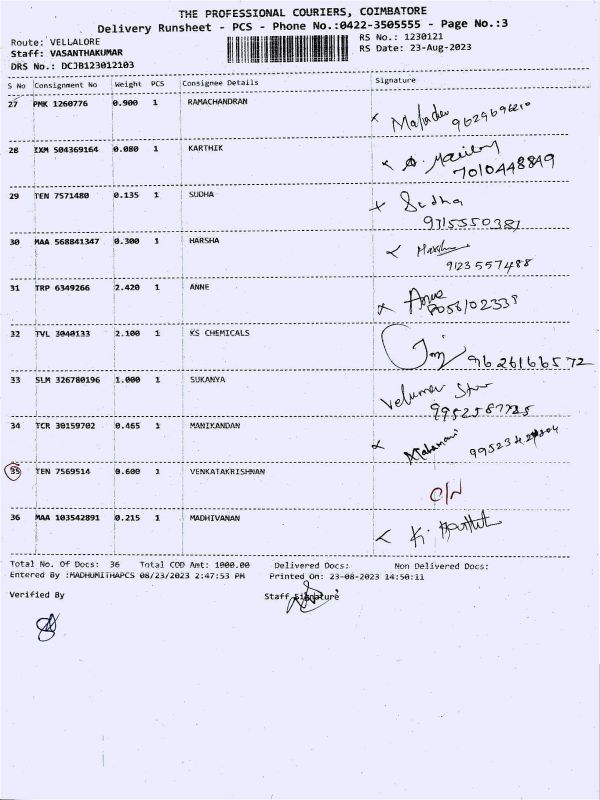 THE PROFESSIONAL COURIERS, COIMBATORE
Delivery Runsheet - PCS - Phone No.:0422-3505555 - Page No.:3
Route: VELLALORE
RS No.: 1230121
Staff: VASANTHAKUMAR
RS Date: 23-Aug-2023
DRS No.: DCJB123012103
S No Consignment No Weight PCS Consignee Details Signature
27 PMK 1260776 0.900 1 RAMACHANDRAN
28 IXM 504369164 0.080 1 KARTHIK
7010448849
29 TEN 7571480 0.135 1 SUDHA
Sudha
9715550381
30 MAA 568841347 0.300 1 HARSHA
9123557488
31 TRP 6349266 2.420 1 ANNE
Anne
8056102339
32 TVL 3040133 2.100 1 KS CHEMICALS
9626166572
33 SLM 326780196 1.000 1 SUKANYA
9952587725
34 TCR 30159702 0.465 1 MANIKANDAN
35 TEN 7569514 0.600 1 VENKATAKRISHNAN
36 MAA 103542891 0.215 1 MADHIVANAN
Total No. Of Docs: 36 Total COD Amt: 1000.00 Delivered Docs: Non Delivered Docs:
Entered By :MADHUMITHAPCS 08/23/2023 2:47:53 PM Printed On: 23-08-2023 14:50:11
Verified By Staff Signature